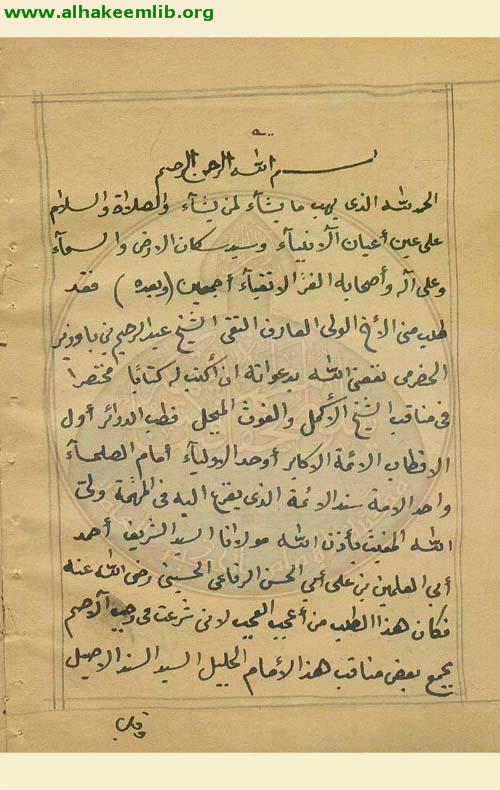 www.alhakeemlib.org
بسم الله الرحمن الرحيم
الحمد لله الذي يهب ما يشآء لمن يشآء والصلاة والسلام
على عين أعيان الانبيآء وسيد سكان الارض والسمآء
وعلى آله وأصحابه الغر الاتقيآء أجمعين (وبعده) فقد
طلب مني الأخ الولي العارف التقي الشيخ عبد الرحيم بن باوزير
الحضرمي نفعني الله بدعواته ان أكتب له كتابا مختصرا
في مناقب الشيخ الأكمل والغوث المبجل قطب الدوائر أول
الاقطاب الائمة الاكابر أوحد الاوليآء أمام الصلحآء
واحد الامة سند الائمة الذي يفزع اليه في المهمة ولي
الله المغيث بأذن الله مولانا السيد الشريف أحمد
أبي العلمين بن علي أبي الحسن الرفاعي الحسيني رضي الله عنه
فكان هذا الطلب من أعجب العجب لانني شرعت في رجب الاصم
بجمع بعض مناقب هذا الأمام الجليل السيد السند الاصيل